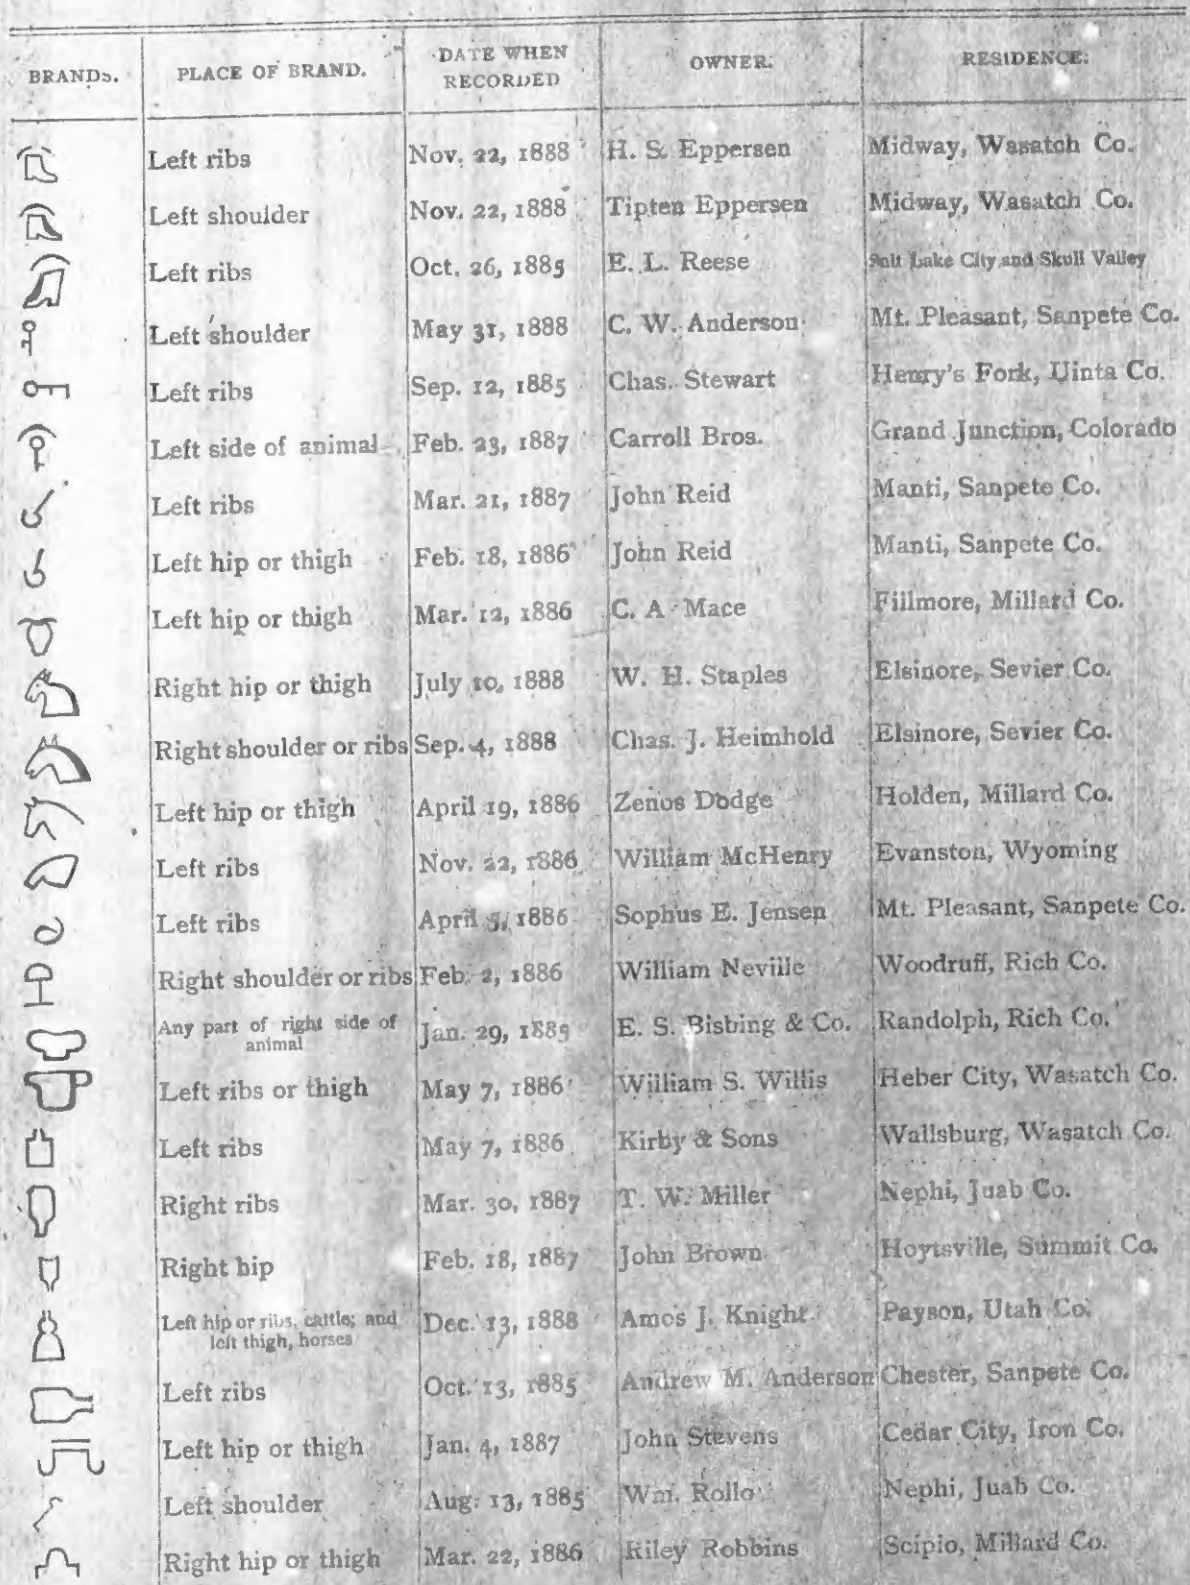 BRANDS. PLACE OF BRAND. DATE WHEN RECORDED OWNER. RESIDENCE.
Left ribs Nov. 22, 1888 H. S. Eppersen Midway, Wasatch Co.
Left shoulder Nov. 22, 1888 Tipten Eppersen Midway, Wasatch Co.
Left ribs Oct. 26, 1885 E. L. Reese Salt Lake City and Skull Valley
Left shoulder May 31, 1888 C. W. Anderson Mt. Pleasant, Sanpete Co.
Left ribs Sep. 12, 1885 Chas. Stewart Henry's Fork, Uinta Co.
Left side of animal Feb. 23, 1887 Carroll Bros. Grand Junction, Colorado
Left ribs Mar. 21, 1887 John Reid Manti, Sanpete Co.
Left hip or thigh Feb. 18, 1886 John Reid Manti, Sanpete Co.
Left hip or thigh Mar. 12, 1886 C. A. Mace Fillmore, Millard Co.
Right hip or thigh July 10, 1888 W. H. Staples Elsinore, Sevier Co.
Right shoulder or ribs Sep. 4, 1888 Chas. J. Heimhold Elsinore, Sevier Co.
Left hip or thigh April 19, 1886 Zenos Dodge Holden, Millard Co.
Left ribs Nov. 22, 1886 William McHenry Evanston, Wyoming
Left ribs April 5, 1886 Sophus E. Jensen Mt. Pleasant, Sanpete Co.
Right shoulder or ribs Feb. 2, 1886 William Neville Woodruff, Rich Co.
Any part of right side of animal Jan. 29, 1885 E. S. Bisbing & Co. Randolph, Rich Co.
Left ribs or thigh May 7, 1886 William S. Willis Heber City, Wasatch Co.
Left ribs May 7, 1886 Kirby & Sons Wallsburg, Wasatch Co.
Right ribs Mar. 30, 1887 T. W. Miller Nephi, Juab Co.
Right hip Feb. 18, 1887 John Brown Hoytsville, Summit Co.
Left hip or ribs, cattle; and left thigh, horses Dec. 13, 1888 Amos J. Knight Payson, Utah Co.
Left ribs Oct. 13, 1885 Andrew M. Anderson Chester, Sanpete Co.
Left hip or thigh Jan. 4, 1887 John Stevens Cedar City, Iron Co.
Left shoulder Aug. 13, 1885 Wm. Rollo Nephi, Juab Co.
Right hip or thigh Mar. 22, 1886 Riley Robbins Scipio, Millard Co.